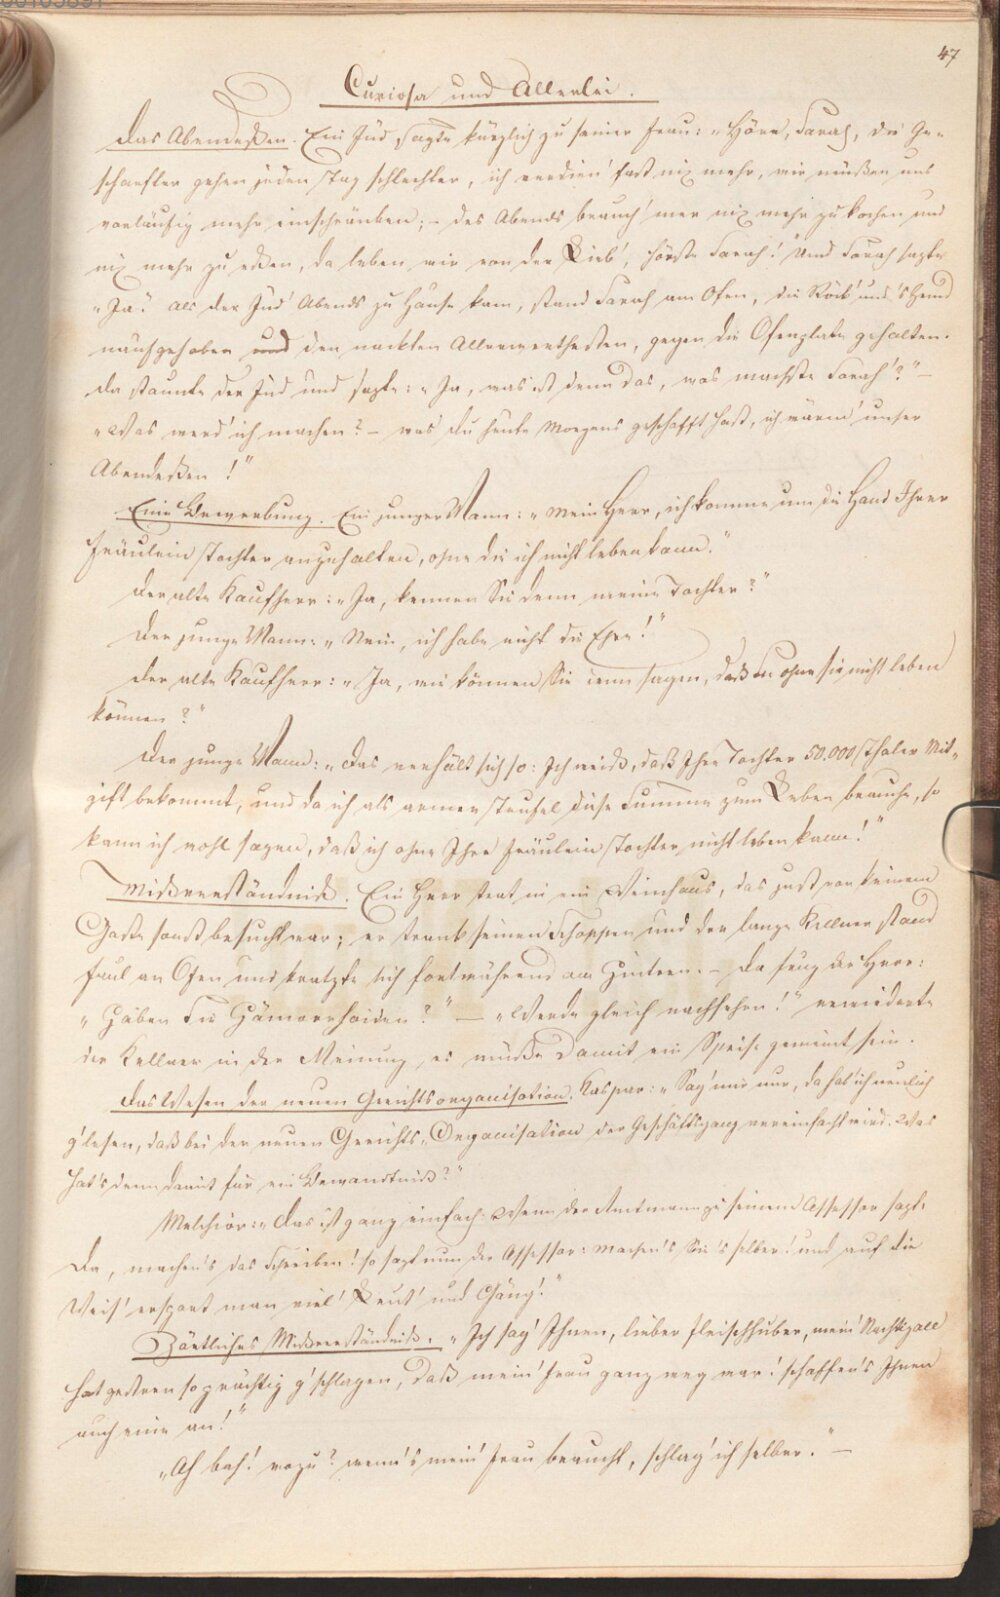 47
Curiosa und Allerlei.
Das Abendeßen. Ein Jud sagte kürzlich zu seiner Frau: „Höre, Sarah, die Ge-
schaefter gehen jeden Tag schlechter, ich verdien' fast nix mehr, wir müßen uns
vorläufig mehr einschränken; – des Abends brauch' mer nix mehr zu kochen und
nix mehr zu eßen, da leben wir von der Lieb', hörste Sarah! Und Sarah sagte
„Ja". Als der Jud' Abends zu Hause kam, stand Sarah am Ofen, die Röck' und 's Hemd
naufgehoben und den nackten Allerwerthesten, gegen die Ofenplatte gehalten.
Da staunte der Jud und sagte: „Ja, was ist denn das, was machste Sarah'?" –
„Was werd' ich machen? – was du heute Morgens geschafft hast, ich wärm' unser
Abendeßen!"
Eine Bewerbung. Ein junger Mann: „Mein Herr, ich komme um die Hand Ihrer
Fräulein Tochter anzuhalten, ohne die ich nicht leben kann."
Der alte Kaufherr: „Ja, kennen Sie denn meine Tochter?"
Der junge Mann: „Nein, ich habe nicht die Ehre!"
Der alte Kaufherr: „Ja, wie können Sie denn sagen, daß Sie ohne sie nicht leben
können?"
Der junge Mann: „Das verhält sich so: Ich weiß, daß Ihre Tochter 50.000 Thaler Mit-
gift bekommt, und da ich als armer Teufel diese Summe zum Leben brauche, so
kann ich wohl sagen, daß ich ohne Ihre Fräulein Tochter nicht leben kann!"
Mißverständniß. Ein Herr trat in ein Weinhaus, das just von keinem
Gaste sonst besucht war; er trank seinen Schoppen und der lange Kellner stand
faul am Ofen und kratzte sich fortwährend am Hintern. – Da frug der Herr:
„Haben Sie Hämorrhoiden?" – „Werde gleich nachsehen!" erwiederte
der Kellner in der Meinung, es müße damit ein Speise gemeint sein.
Das Wesen der neuen Gerichtsorganisation. Kaspar: „Sag' mir nur, da hab' ich neulich
g'lesen, daß bei der neuen Gerichts-Organisation der Geschäftsgang vereinfacht wird. Was
hat's denn damit für ein Bewandtniß?"
Melchior: „Das ist ganz einfach. Wenn der Amtmann zu seinem Assessor sagt:
Da, machen's das Schreiben! so sagt nun der Assessor: Machen's Sie's selber! und auf die
Weis' erspart man viel' Leut' und Gäng'."
Zärtliches Mißverständniß. „Ich sag' Ihnen, lieber Fleischhuber, mein' Nachtigall
hat gestern so prächtig g'schlagen, daß mein' Frau ganz weg war! schaffen's Ihnen
auch eine an!"
„Ah bah! wozu? wenn's mein' Frau braucht, schlag' ich selber." –